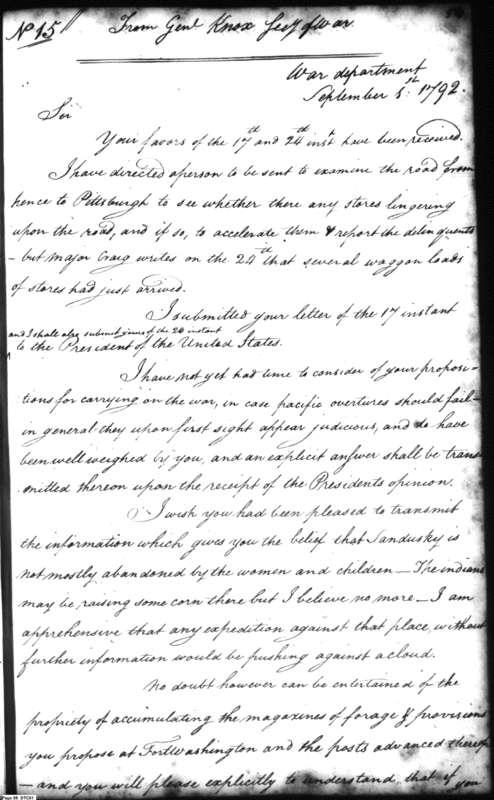 No 15 From Genl Knox Secy of War.
War department
September 1st: 1792.
Sir
Your favors of the 17th and 24th inst have been received.
I have directed a person to be sent to examine the road from
hence to Pittsburgh to see whether there any stores lingering
upon the road, and if so, to accelerate them & report the delinquents
- but major Craig writes on the 24th that several waggon loads
of stores had just arrived.
I submitted your letter of the 17 instant
and I shall also submit yours of the 24 instant
to the President of the United States.
I have not yet had time to consider of your proposi-
tions for carrying on the war, in case pacific overtures should fail -
in general they upon first sight appear judicious, and to have
been well weighed by you, and an explicit answer shall be trans
mitted thereon upon the receipt of the Presidents opinion.
I wish you had been pleased to transmit
the information which gives you the belief that Sandusky is
not mostly abandoned by the women and children - The indians
may be raising some corn there but I believe no more - I am
apprehensive that any expedition against that place, without
further information would be pushing against a cloud.
No doubt however can be entertained of the
propriety of accumulating the magazines of forage & provisions
you propose at Fort Washington and the posts advanced thereof
- and you will please explicitly to understand that if you